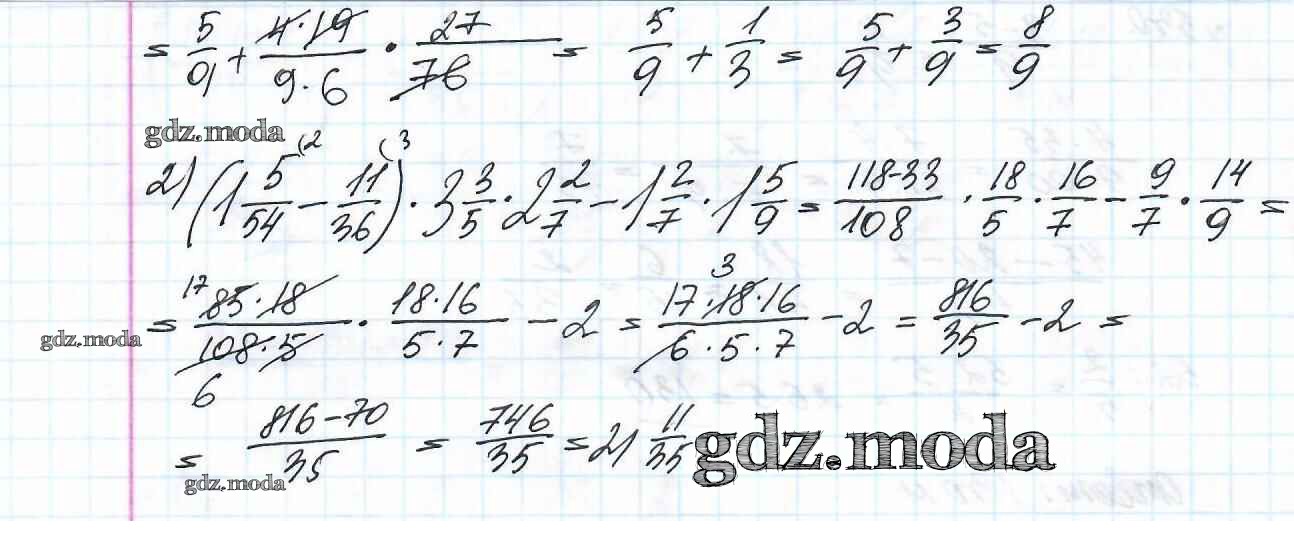 = 5/9 + 4·19/9·6 · 27/76 = 5/9 + 1/3 = 5/9 + 3/9 = 8/9
gdz.moda
2) (1 5/54 (2 − 11/36 (3) · 3 3/5 · 2 2/7 − 1 2/7 · 1 5/9 = 118-33/108 · 18/5 · 16/7 − 9/7 · 14/9 =
= 17 85·18/108·5 6 · 18·16/5·7 − 2 = 17·18·16 3/6·5·7 − 2 = 816/35 − 2 =
gdz.moda
= 816−70/35 = 746/35 = 21 11/35
gdz.moda
gdz.moda